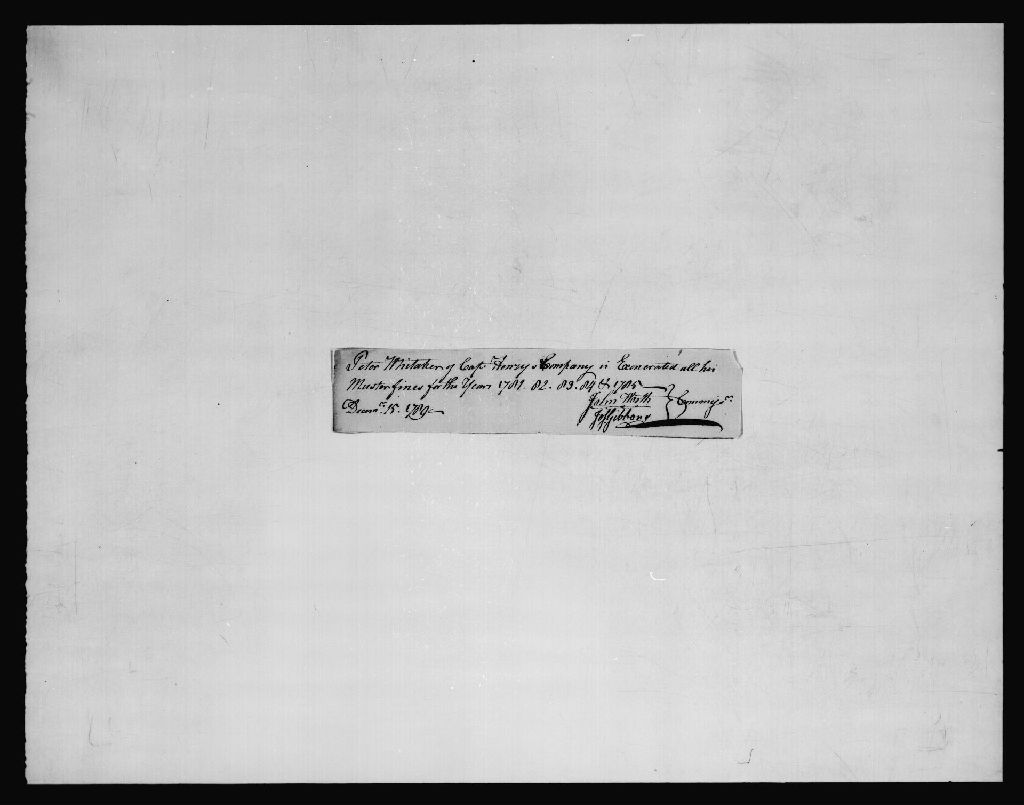 Peter Whitaker of Capt Henry's Company is Exonerated all his
Muster fines for the Years 1781. 82. 83. 84 & 1785
John Wirth
Commiss.rs
Decem.r 15. 1789
Gibbons